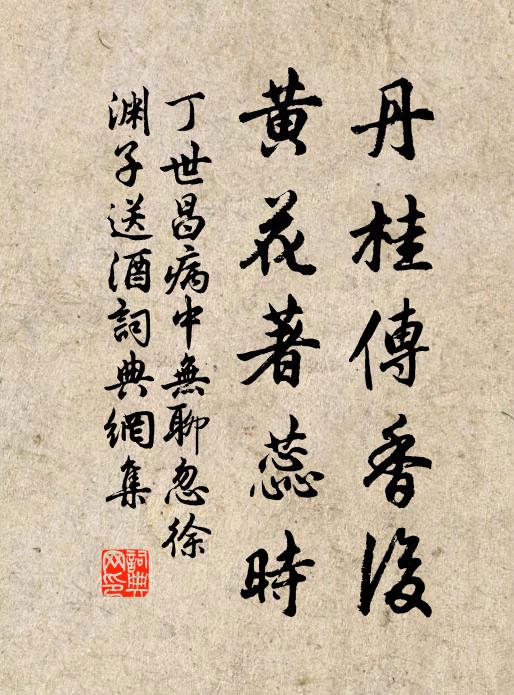 丹桂傳香後
黃花著蕊時
丁世昌病中無聊忽徐
淵子送酒詞典網集
詞典網印